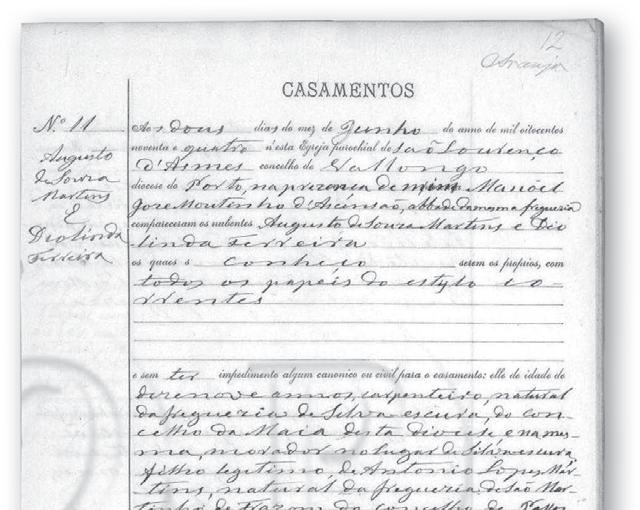 12
Araujo
CASAMENTOS
Nº 11
Augusto
de Souza
Martins
E
Deolinda
Ferreira
Aos dous dias do mez de Junho do anno de mil oitocentos
noventa e quatro n'esta Egreja parochial de São Lourenço
d'Asmes concelho de Vallongo
diocese do Porto, na presença de mim Manoel
Jose Moutinho d'Ascensão, abbade da mesma freguezia
compareceram os nubentes Augusto de Souza Martins e Deo
linda Ferreira
os quaes conheço serem os proprios, com
todos os papeis do estylo co-
rrentes
e sem ter impedimento algum canonico ou civil para o casamento: elle de idade de
dezenove annos, carpenteiro, natural
da freguezia de Silva escura, do con-
celho da Maia desta diocese e na mes-
ma, morador no lugar de Silva escura,
filho legitimo de Antonio Lopes Mar-
tins, natural da freguezia de São Mar-
tinho de do concelho de